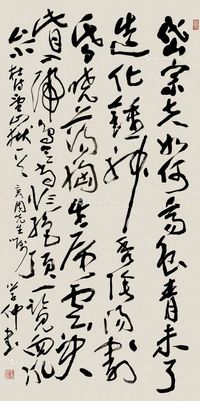 岱宗夫如何齊魯青未了
造化鍾神秀陰陽割
昏曉蕩胸生層雲決
眥入歸鳥會當凌絕頂一覽眾山
小 杜詩望嶽一首 先生
学仲書